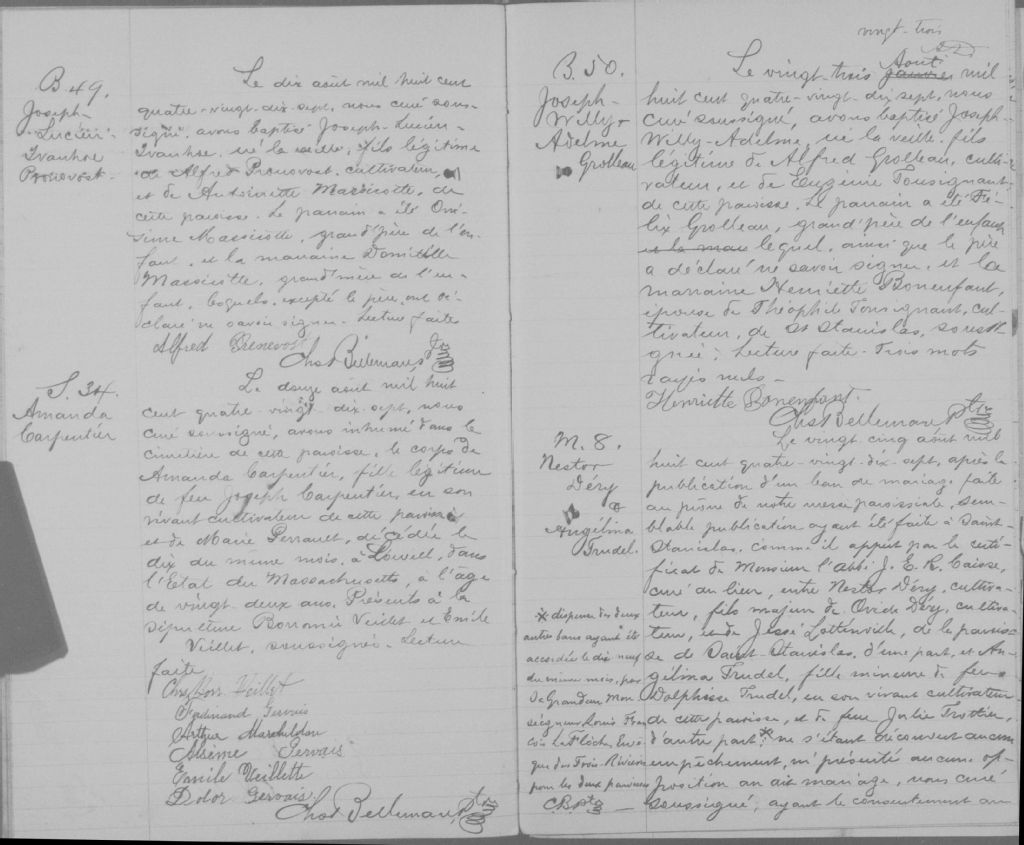 B. 49.
Joseph-
Lucien-
Ivanhoe
Pronovost.
Le dix août mil huit cent
quatre-vingt-dix-sept, nous curé sous-
signé, avons baptisé Joseph-Lucien-
Ivanhoe, né la veille, fils légitime
de Alfred Pronovost, cultivateur,
et de Antoinette Massicotte, de
cette paroisse. Le parrain a été Oné-
sime Massicotte, grand'père de l'en-
fant, et la marraine Domitille
Massicotte, grand'mère de l'en-
fant, lesquels, excepté le père, ont dé-
claré ne savoir signer. Lecture faite
Alfred Pronovost
Chs Bellemare, Ptre
S. 34.
Amanda
Carpentier
Le douze août mil huit
cent quatre-vingt-dix-sept, nous
curé soussigné, avons inhumé dans le
cimetière de cette paroisse, le corps de
Amanda Carpentier, fille légitime
de feu Joseph Carpentier, en son
vivant cultivateur de cette paroisse
et de Marie Perrault, décédée le
dix du même mois, à Lowell, dans
l'Etat du Massachusetts, à l'âge
de vingt-deux ans. Présents à la
sépulture Borromée Veillet et Emile
Veillet, soussignés. Lecture
faite
Chs Bor. Veillet
Ferdinand Gervais
Arthur Marchildon
Arsème Gervais
Emile Veillette
Dolor Gervais
Chs Bellemare, Ptre
vingt-trois
B. 50.
Joseph-
Willy-
Adelme
Grolleau
Août
Le vingt-trois janvier mil
huit cent quatre-vingt-dix sept, nous
curé soussigné, avons baptisé Joseph-
Willy-Adelme, né la veille, fils
légitime de Alfred Grolleau, culti-
vateur, et de Eugénie Tousignant,
de cette paroisse. Le parrain a été Fé-
lix Grolleau, grand'père de l'enfant
et la mar lequel, ainsi que le père
a déclaré ne savoir signer, et la
marraine Henriette Bonenfant,
épouse de Théophile Tousignant, cul-
tivateur, de St Stanislas, soussi-
gnée. Lecture faite. Trois mots
rayés nuls.
Henriette Bonenfant.
Chs Bellemare, Ptre
M. 8.
Nestor
Déry
&
Angélina
Trudel.
Le vingt cinq août mil
huit cent quatre-vingt-dix-sept, après la
publication d'un ban de mariage faite
au prône de notre messe paroissiale, sem-
blable publication ayant été faite à Saint-
Stanislas, comme il appert par le certi-
ficat de Monsieur l'abbé J. E. R. Caisse,
curé du lieu, entre Nestor Déry, cultiva-
teur, fils majeur de Ovide Déry, cultiva-
teur, et de Jessé Lottinville, de la parois-
se de Saint-Stanislas, d'une part, et An-
gélina Trudel, fille mineure de feu
Dolphisse Trudel, en son vivant cultivateur
de cette paroisse, et de feue Julie Trottier,
d'autre part; * ne s'étant découvert aucun
empêchement, ni présenté aucune op-
position au dit mariage, nous curé
soussigné, ayant le consentement du
* dispense des deux
autre bans ayant été
accordée le dix neuf
du même mois, par
Sa Grandeur Mon
seigneur Louis Fran
çois Laflèche, Evê-
que des Trois-Rivières
pour les deux paroisses
C.B. ptre